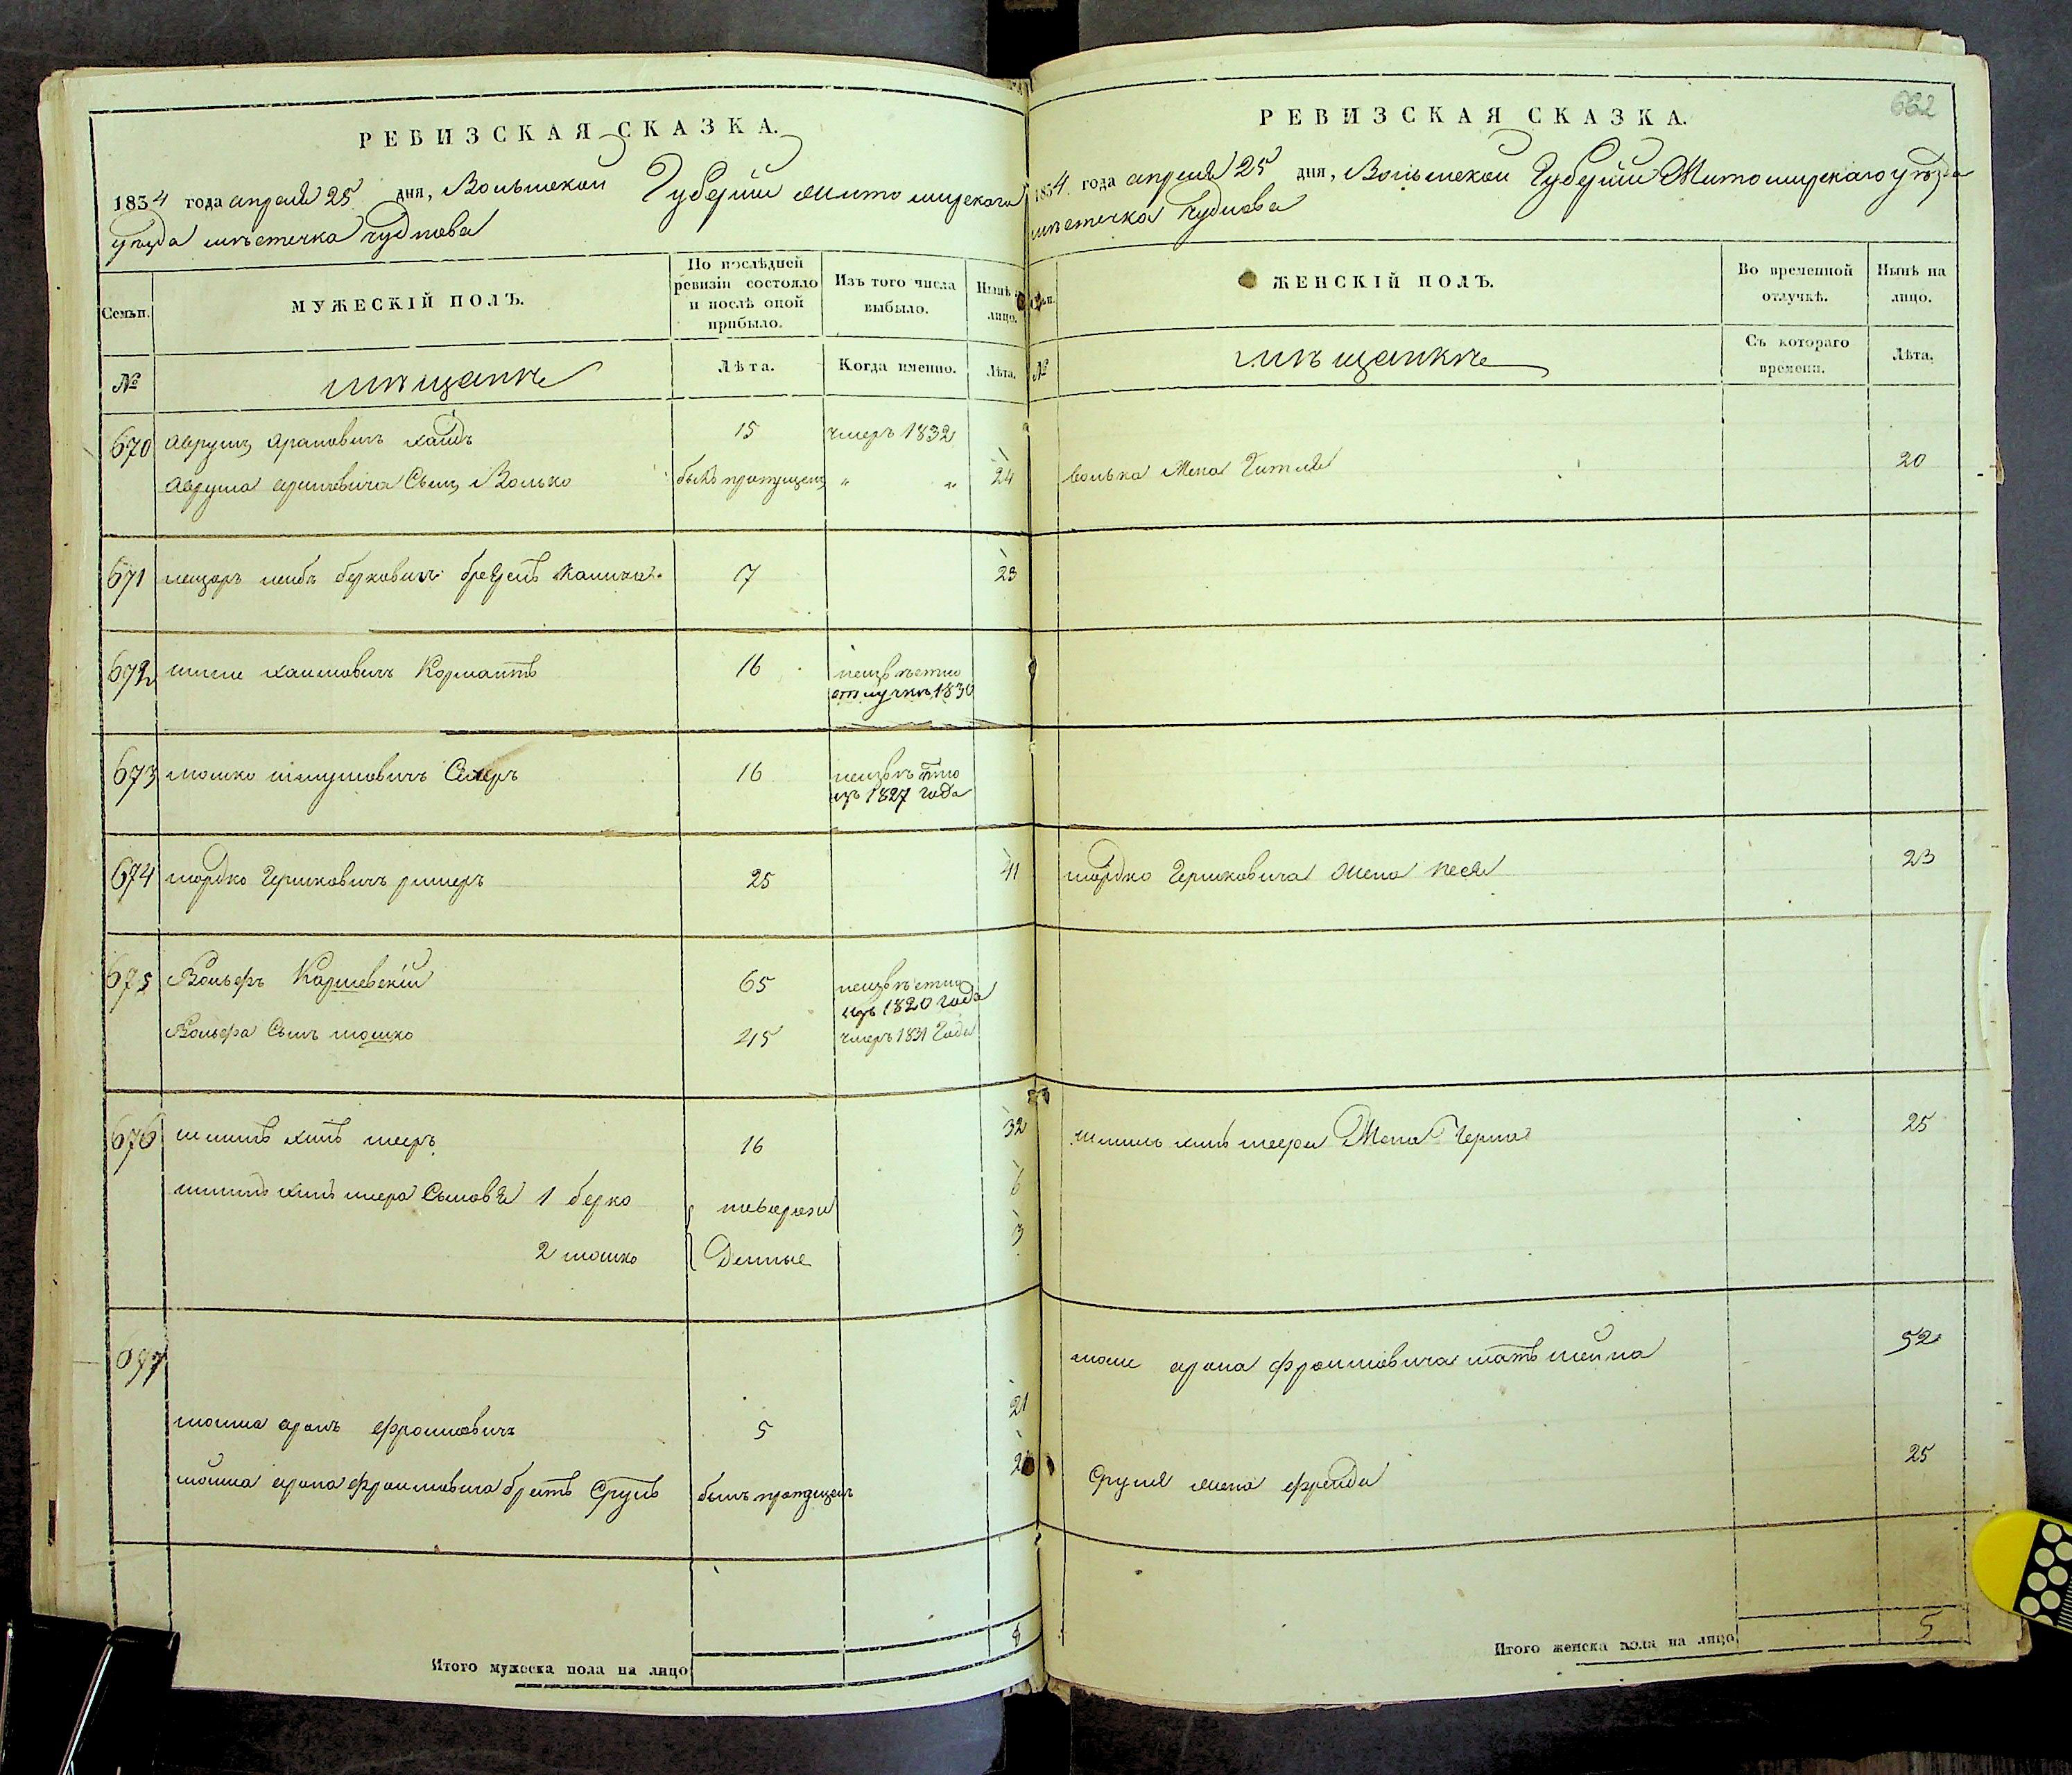 РЕВИЗСКАЯ СКАЗКА.
1834 года апреля 25 дня, Волынской Губерніи Житомирскаго
уѣзда мѣстечка Чуднова
Семьи.
МУЖЕСКІЙ ПОЛЪ.
По послѣдней
ревизіи состояло
и послѣ оной
прибыло.
Изъ того числа
выбыло.
Нынѣ на
лицо.
№
мѣщане
Лѣта.
Когда именно.
Лѣта.
670 Аврумъ Ароновичъ 15 умеръ 1832
Аврума Ароновича Сынъ Волько былъ пропущенъ „ „ 24
671 лейбъ берковичъ 7 23
672 хаимовичъ 16 неизвѣстно
отлучкѣ 1830
673 мошко шмулiовичъ 16 неизвѣстно
изъ 1827 года
674 мордко Гершковичъ 25 41
675 Вольфъ 65 неизвѣстно
изъ 1820 года
Вольфа Сынъ мошко 45 умеръ 1831 Года
676 16 32
Сыновья 1 берко новорож 6
2 мошко денные 3
677
аронъ Фроимовичъ 5 21
арона Фроимовича братъ Сруль былъ пропущенъ 20
Итого мужеска пола на лицо 8
662
РЕВИЗСКАЯ СКАЗКА.
1834 года апреля 25 дня, Волынской Губерніи Житомирскаго уѣзда
мѣстечка Чуднова
Семьи.
ЖЕНСКІЙ ПОЛЪ.
Во временной
отлучкѣ.
Нынѣ на
лицо.
№
мѣщанкѣ
Съ котораго
времени.
Лѣта.
Волька Жена Гитля 20
мордко Гершковича Жена Песя 23
Жена Черна 25
арона Фроимовича мать 52
Сруля жена Фрейда 25
Итого женска пола на лицо 5